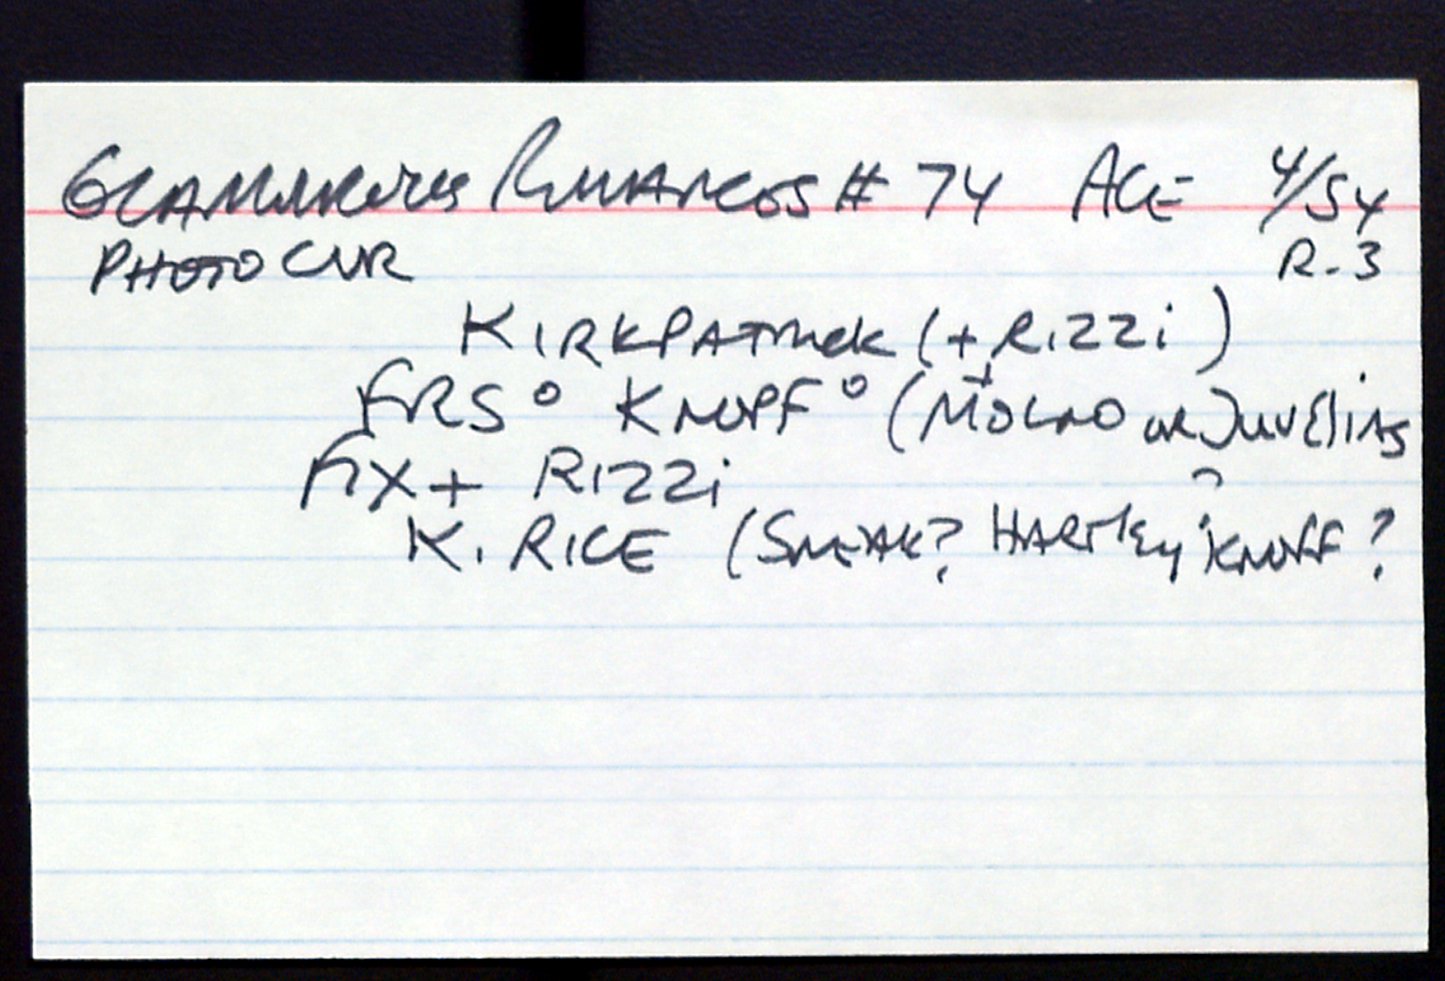 GLAMOUROUS ROMANCES # 74 ACE 4/54
PHOTO CVR R-3
KIRKPATRICK (+ RIZZI)
FRS° KNOPF° (MOLNO OR JUVELIAS
?
FIX + RIZZI
K. RICE (SNEAK? HARTLEY; KNOFF?